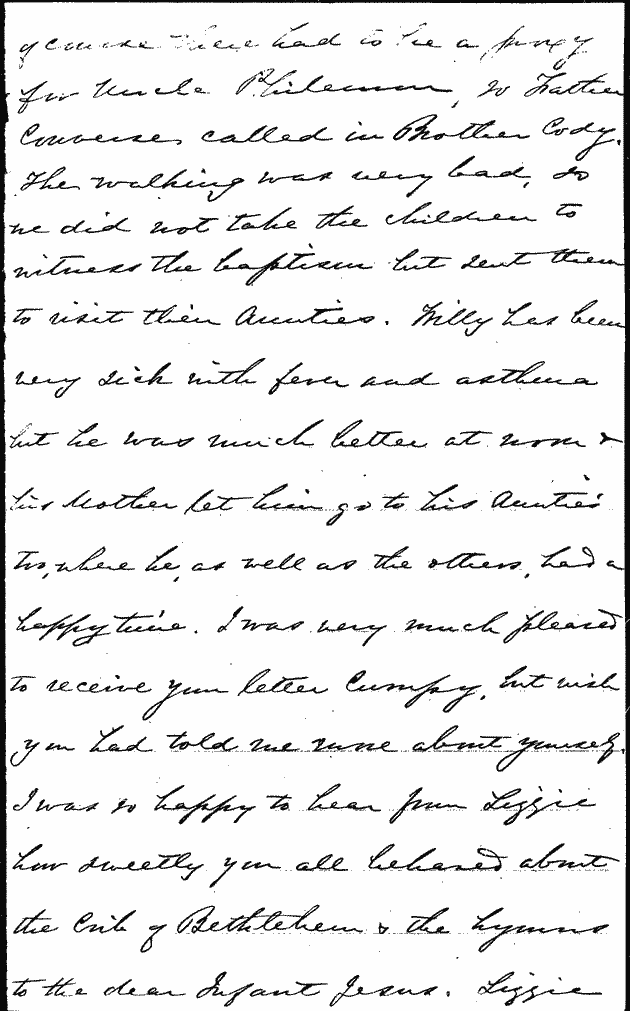 of course there had to be a proxy
for Uncle Philemon, so Father
Converse, called in Brother Cody.
The walking was very bad, so
we did not take the children to
witness the baptism but sent them
to visit their Aunties. Willy has been
very sick with fever and asthma
but he was much better at noon &
his Mother let him go to his Auntie's
too, where he, as well as the others, had a
happy time. I was very much pleased
to receive your letter Cumpy, but wish
you had told me more about yourself.
I was so happy to hear from Lizzie
how sweetly you all behaved about
the Crib of Bethlehem & the hymns
to the dear Infant Jesus. Lizzie